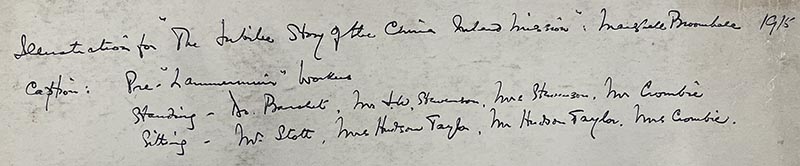 Illustration for "The Jubilee Story of the China Inland Mission": Marshall Broomhall 1915
Caption: Pre-"Lammermuir" Workers
Standing - Dr. Barchet, Mr J.W. Stevenson, Mrs Stevenson, Mr Crombie
Sitting - Mr. Stott, Mrs Hudson Taylor, Mr Hudson Taylor, Mrs Crombie.